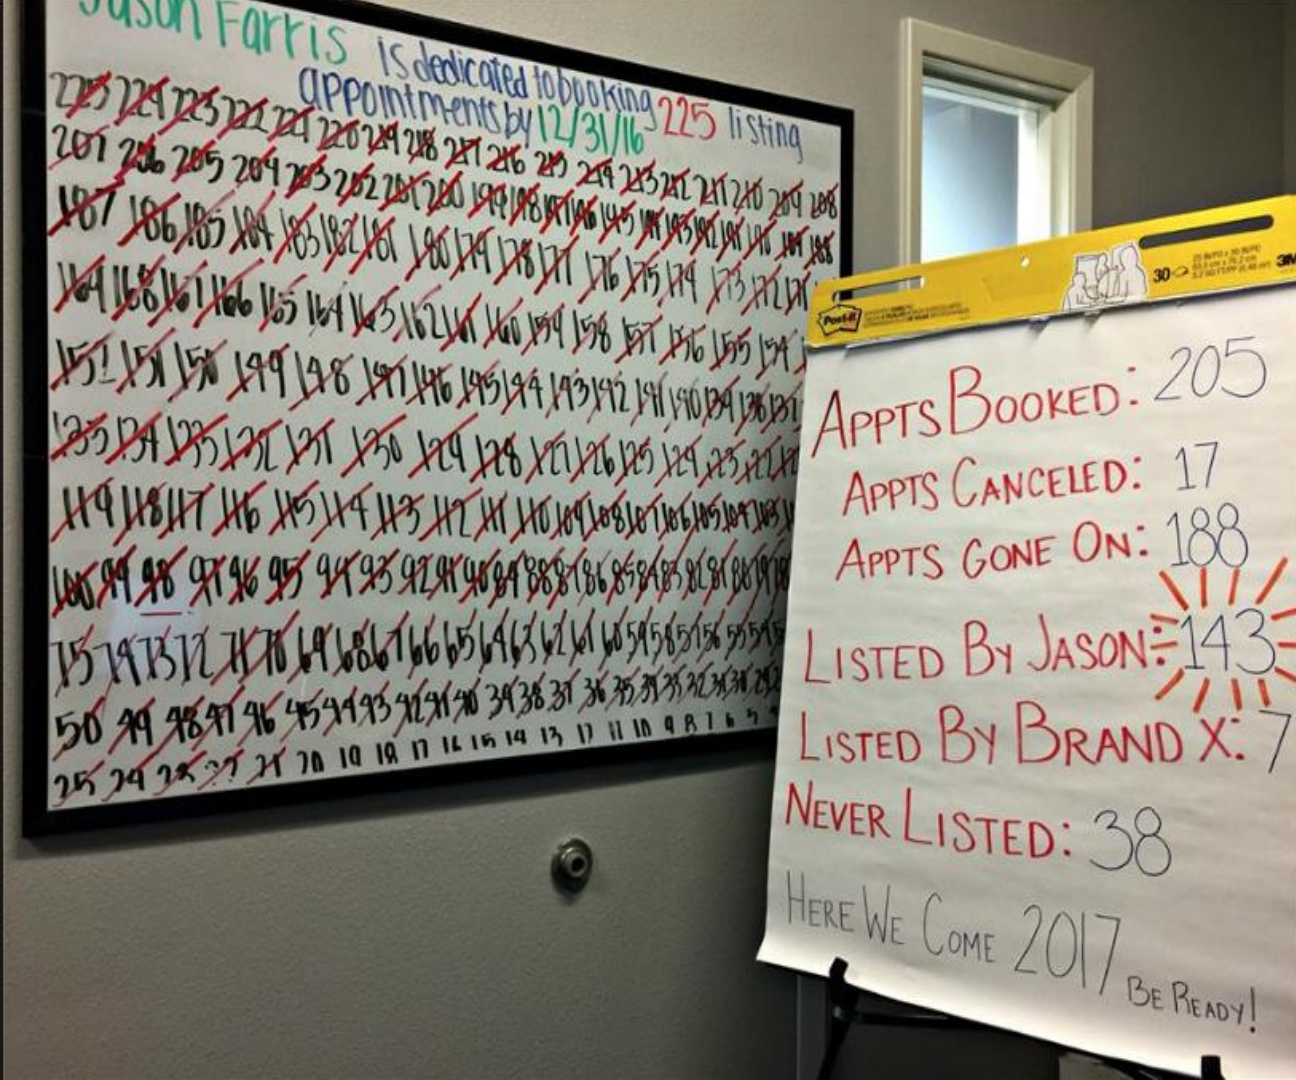 Jason Farris is dedicated to booking 225 listing
appointments by 12/31/16
225 224 223 222 221 220 219 218 217 216 215 214 213 212 211 210 209 208
207 206 205 204 203 202 201 200 199 198 197 196 195 194 193 192 191 190 189 188
187 186 185 184 183 182 181 180 179 178 177 176 175 174 173 172
169 168 167 166 165 164 163 162 161 160 159 158 157 156 155 154
151 150 149 148 147 146 145 144 143 142 141 140 139 138 137
135 134 133 132 131 130 129 128 127 126 125 124 123 122
119 118 117 116 115 114 113 112 111 110 109 108 107 106 105 104 103
100 99 98 97 96 95 94 93 92 91 90 89 88 87 86 85 84 83 82 81 80 79 78
75 74 73 72 71 70 69 68 67 66 65 64 63 62 61 60 59 58 57 56 55 54
50 49 48 47 46 45 44 43 42 41 40 39 38 37 36 35 34 33 32 31 30 29
25 24 23 22 21 20 19 18 17 16 15 14 13 12 11 10 9 8 7 6 5 4
Post-it
30
3M
APPTS BOOKED: 205
APPTS CANCELED: 17
APPTS GONE ON: 188
LISTED BY JASON: 143
LISTED BY BRAND X: 7
NEVER LISTED: 38
HERE WE COME 2017 BE READY!